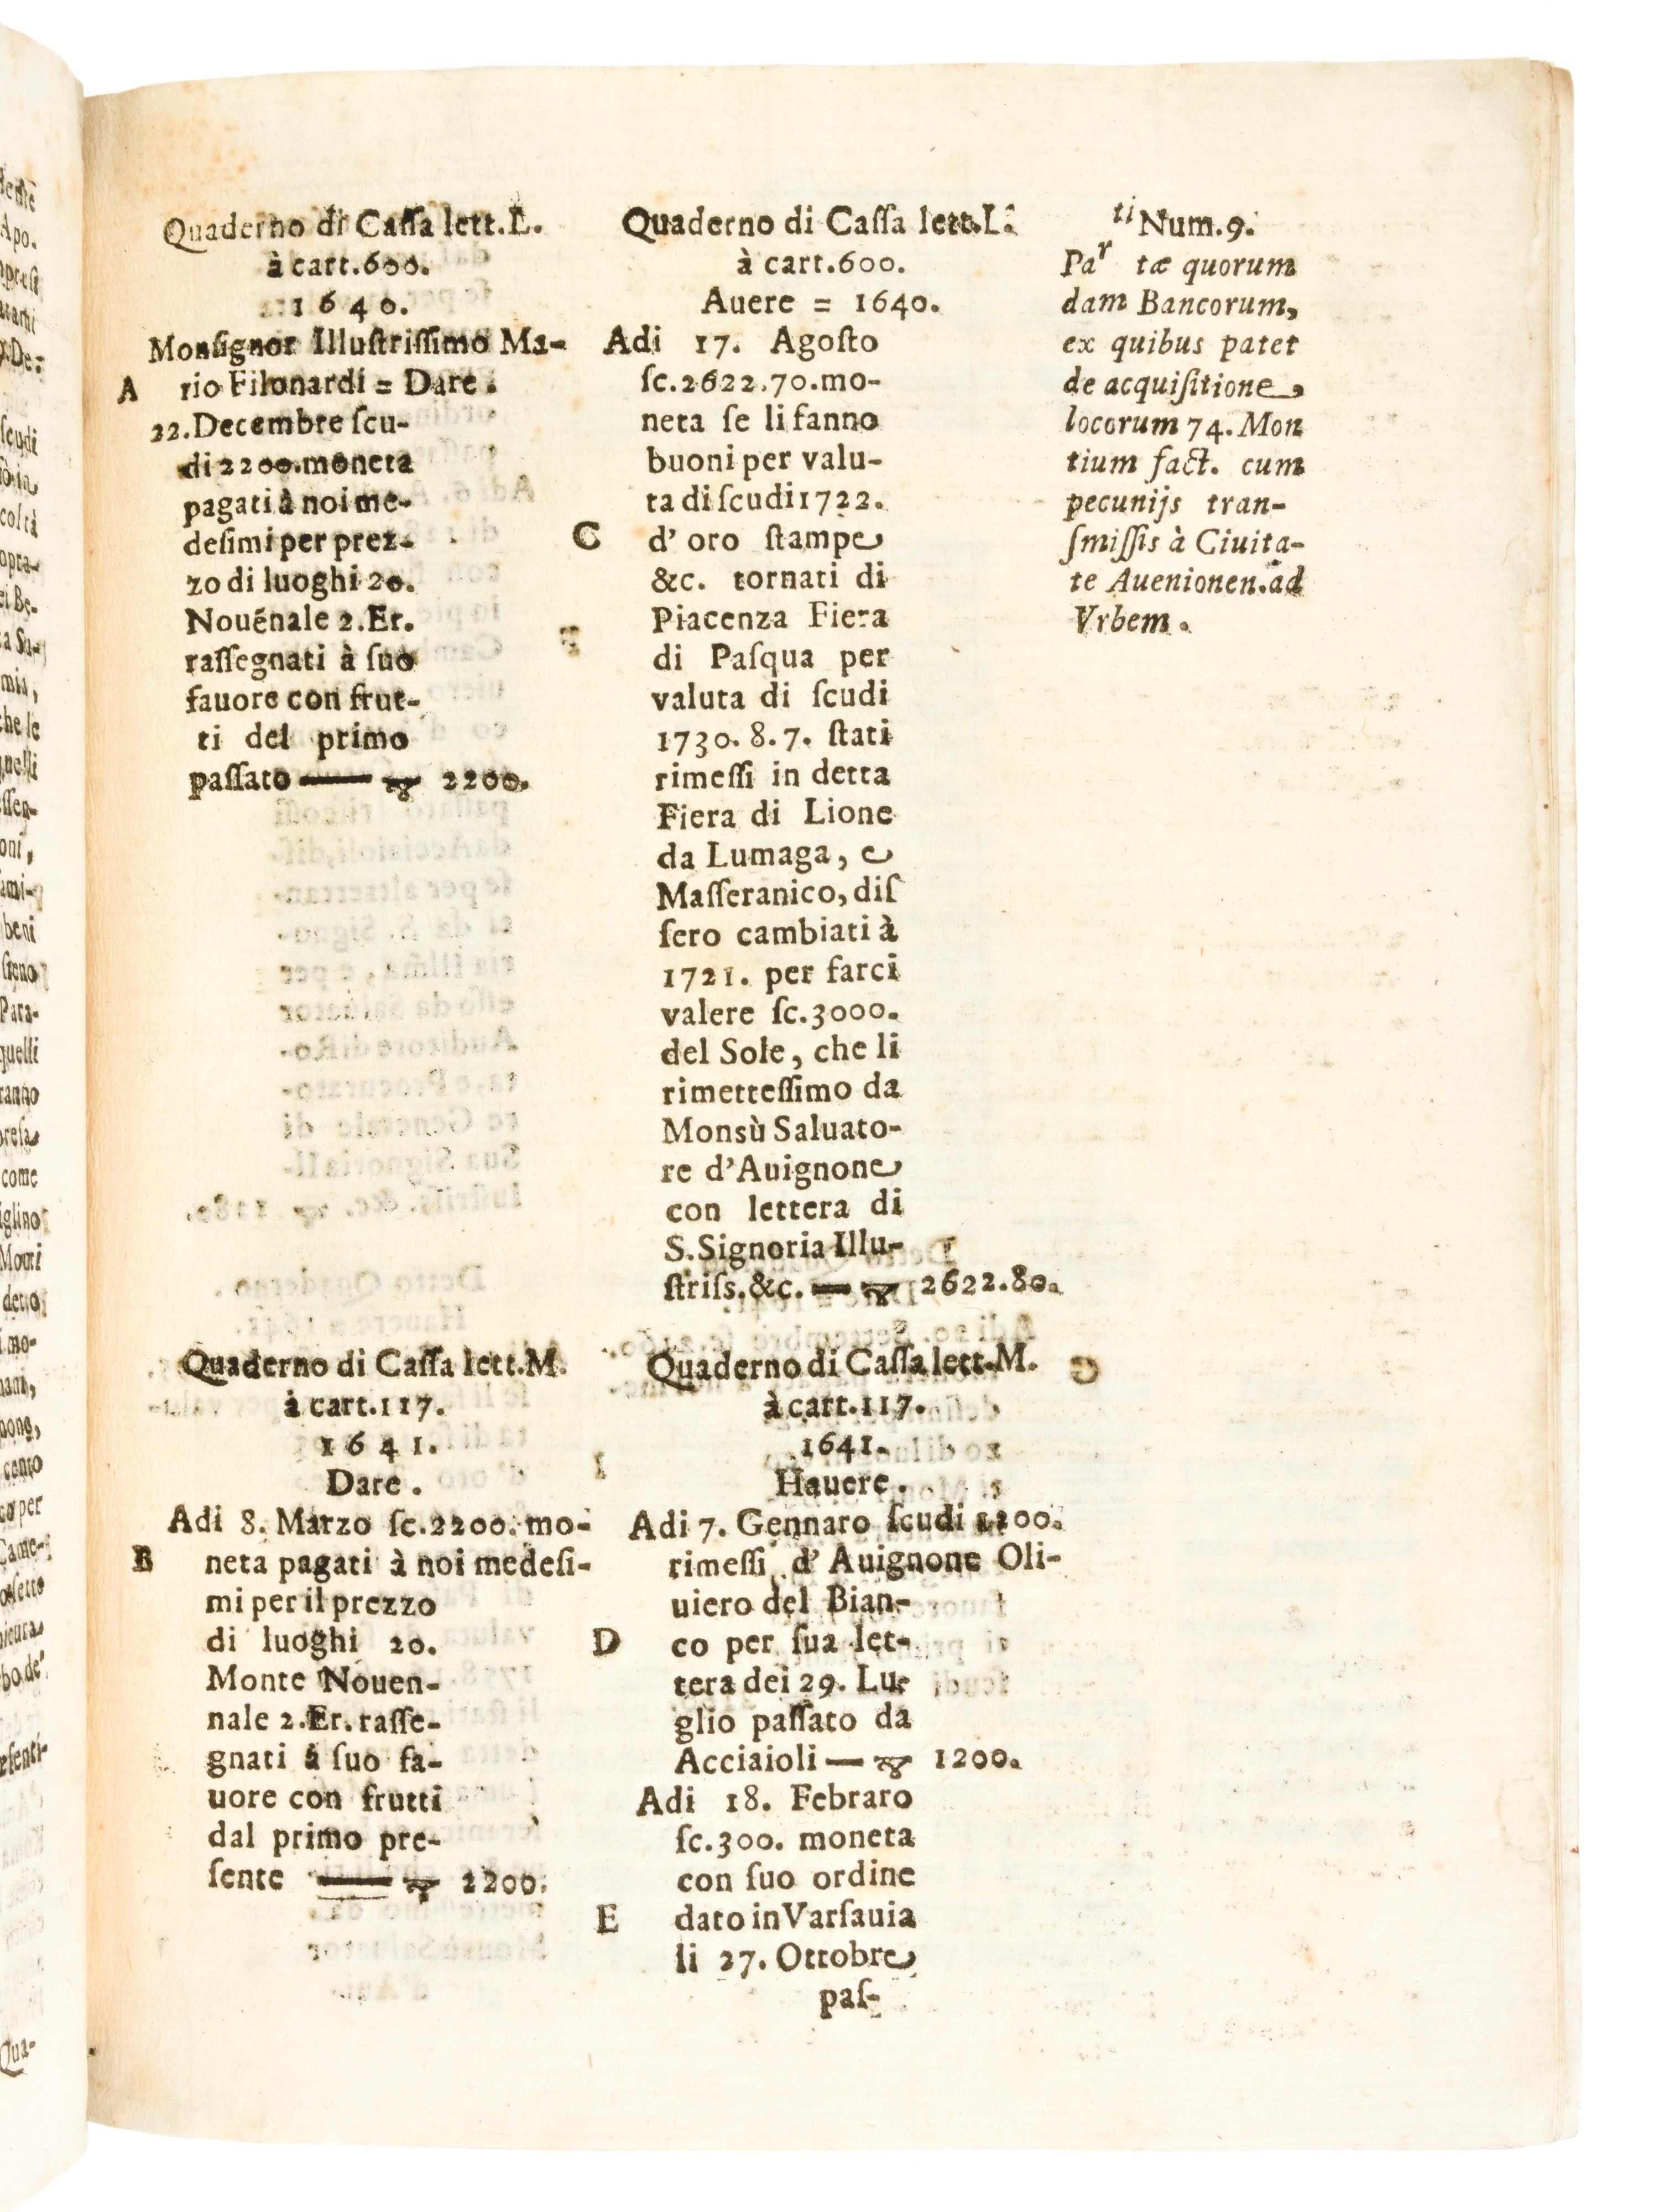 Quaderno di Caſſa lett.L.
à cart.600.
1640.
Monſignor Illuſtriſſimo Ma-
A rio Filonardi = Dare.
22.Decembre ſcu-
di 2200.moneta
pagati à noi me-
deſimi per prez-
zo di luoghi 20.
Nouẽnale 2.Er.
raſſegnati à ſuo
fauore con frut-
ti del primo
paſſato — ▽ 2200.
Quaderno di Caſſa lett.L.
à cart.600.
Auere = 1640.
Adi 17. Agoſto
ſc.2622.70.mo-
neta ſe li fanno
buoni per valu-
ta di ſcudi 1722.
C d' oro ſtampe
&c. tornati di
Piacenza Fiera
di Paſqua per
valuta di ſcudi
1730. 8. 7. ſtati
rimeſſi in detta
Fiera di Lione
da Lumaga, e
Maſſeranico, diſ
ſero cambiati à
1721. per farci
valere ſc.3000.
del Sole, che li
rimetteſſimo da
Monsù Saluato-
re d'Auignone
con lettera di
S.Signoria Illu-
ſtriſs.&c. — ▽ 2622.80.
ti Num.9.
Par tæ quorum
dam Bancorum,
ex quibus patet
de acquiſitione,
locorum 74. Mon
tium fact. cum
pecunijs tran-
ſmiſſis à Ciuita-
te Auenionen.ad
Vrbem.
Quaderno di Caſſa lett.M.
à cart.117.
1641.
Dare.
Adi 8. Marzo ſc.2200. mo-
B neta pagati à noi medeſi-
mi per il prezzo
di luoghi 20.
Monte Nouen-
nale 2.Er. raſſe-
gnati à ſuo fa-
uore con frutti
dal primo pre-
ſente — ▽ 2200.
Quaderno di Caſſa lett.M.
à cart.117.
1641.
Hauere.
Adi 7. Gennaro ſcudi 1200.
rimeſſi d' Auignone Oli-
uiero del Bian-
D co per ſua let-
tera dei 29. Lu-
glio paſſato da
Acciaioli — ▽ 1200.
Adi 18. Febraro
ſc.300. moneta
con ſuo ordine
E dato in Varſauia
li 27. Ottobre
paſ-